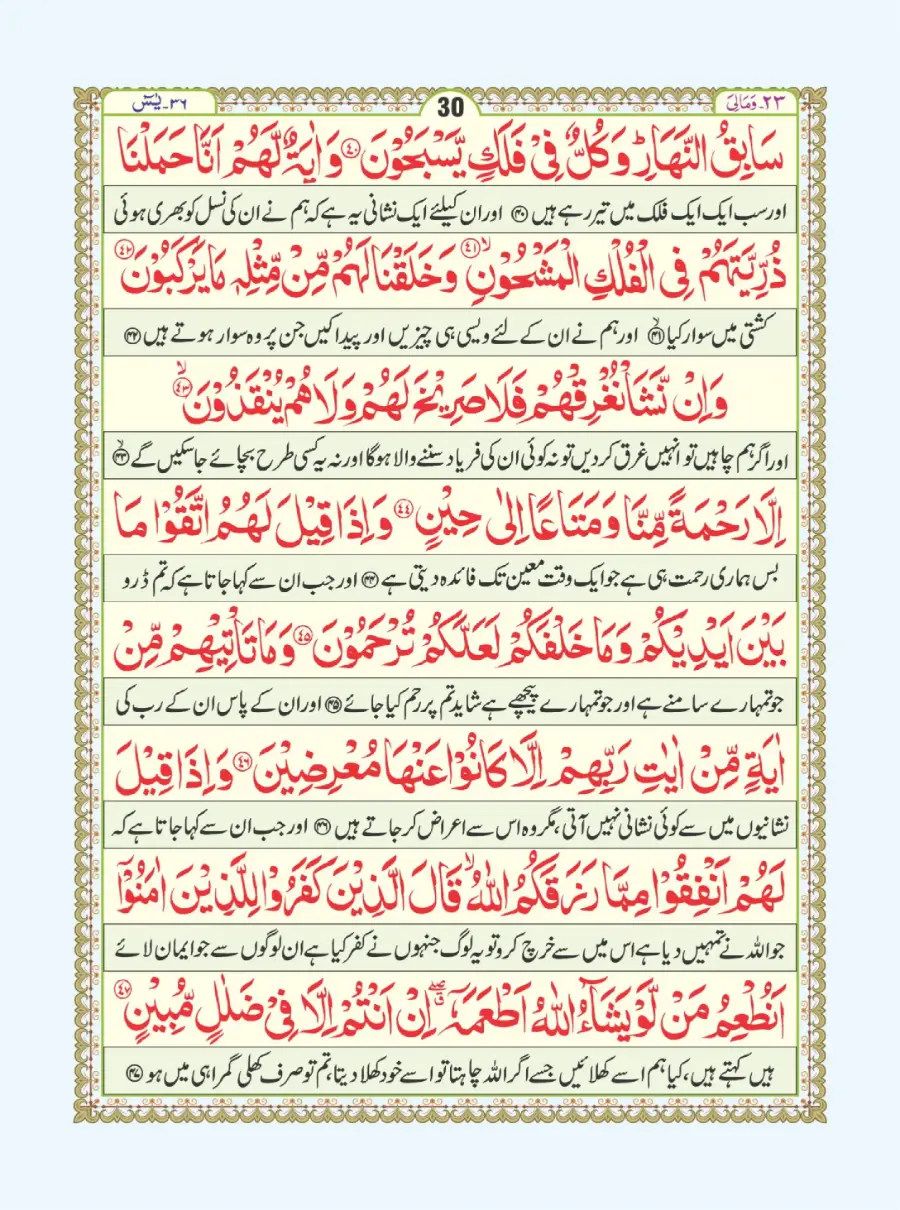 ٢٣۔ وَمَالِیَ
30
٣٦۔ یٰسٓ
سَابِقُ النَّهَارِؕ وَكُلٌّ فِیْ فَلَكٍ یَّسْبَحُوْنَ ﴿٤٠﴾ وَاٰیَةٌ لَّهُمْ اَنَّا حَمَلْنَا
اور سب ایک ایک فلک میں تیر رہے ہیں ﴿۴۰﴾ اور ان کیلئے ایک نشانی یہ ہے کہ ہم نے ان کی نسل کو بھری ہوئی
ذُرِّیَّتَهُمْ فِی الْفُلْكِ الْمَشْحُوْنِۙ ﴿٤١﴾ وَخَلَقْنَا لَهُمْ مِّنْ مِّثْلِهٖ مَا یَرْكَبُوْنَ ﴿٤٢﴾
کشتی میں سوار کیا ﴿۴۱﴾ۙ اور ہم نے ان کے لئے ویسی ہی چیزیں اور پیدا کیں جن پر وہ سوار ہوتے ہیں ﴿۴۲﴾
وَاِنْ نَّشَاْ نُغْرِقْهُمْ فَلَا صَرِیْخَ لَهُمْ وَلَا هُمْ یُنْقَذُوْنَۙ ﴿٤٣﴾
اور اگر ہم چاہیں تو انہیں غرق کر دیں تو نہ کوئی ان کی فریاد سننے والا ہوگا اور نہ یہ کسی طرح بچائے جا سکیں گے ﴿۴۳﴾ۙ
اِلَّا رَحْمَةً مِّنَّا وَمَتَاعًا اِلٰى حِیْنٍ ﴿٤٤﴾ وَاِذَا قِیْلَ لَهُمُ اتَّقُوْا مَا
بس ہماری رحمت ہی ہے جو ایک وقت معین تک فائدہ دیتی ہے ﴿۴۴﴾ اور جب ان سے کہا جاتا ہے کہ تم ڈرو
بَیْنَ اَیْدِیْكُمْ وَمَا خَلْفَكُمْ لَعَلَّكُمْ تُرْحَمُوْنَ ﴿٤٥﴾ وَمَا تَاْتِیْهِمْ مِّنْ
جو تمہارے سامنے ہے اور جو تمہارے پیچھے ہے شاید تم پر رحم کیا جائے ﴿۴۵﴾ اور ان کے پاس ان کے رب کی
اٰیَةٍ مِّنْ اٰیٰتِ رَبِّهِمْ اِلَّا كَانُوْا عَنْهَا مُعْرِضِیْنَ ﴿٤٦﴾ وَاِذَا قِیْلَ
نشانیوں میں سے کوئی نشانی نہیں آتی، مگر وہ اس سے اعراض کر جاتے ہیں ﴿۴۶﴾ اور جب ان سے کہا جاتا ہے کہ
لَهُمْ اَنْفِقُوْا مِمَّا رَزَقَكُمُ اللّٰهُۙ قَالَ الَّذِیْنَ كَفَرُوْا لِلَّذِیْنَ اٰمَنُوْۤا
جو اللہ نے تمہیں دیا ہے اس میں سے خرچ کرو تو یہ لوگ جنہوں نے کفر کیا ہے ان لوگوں سے جو ایمان لائے
اَنُطْعِمُ مَنْ لَّوْ یَشَآءُ اللّٰهُ اَطْعَمَهٗۤ ۖۗ اِنْ اَنْتُمْ اِلَّا فِیْ ضَلٰلٍ مُّبِیْنٍ ﴿٤٧﴾
ہیں کہتے ہیں، کیا ہم اسے کھلائیں جسے اگر اللہ چاہتا تو اسے خود کھلا دیتا، تم تو صرف کھلی گمراہی میں ہو ﴿۴۷﴾